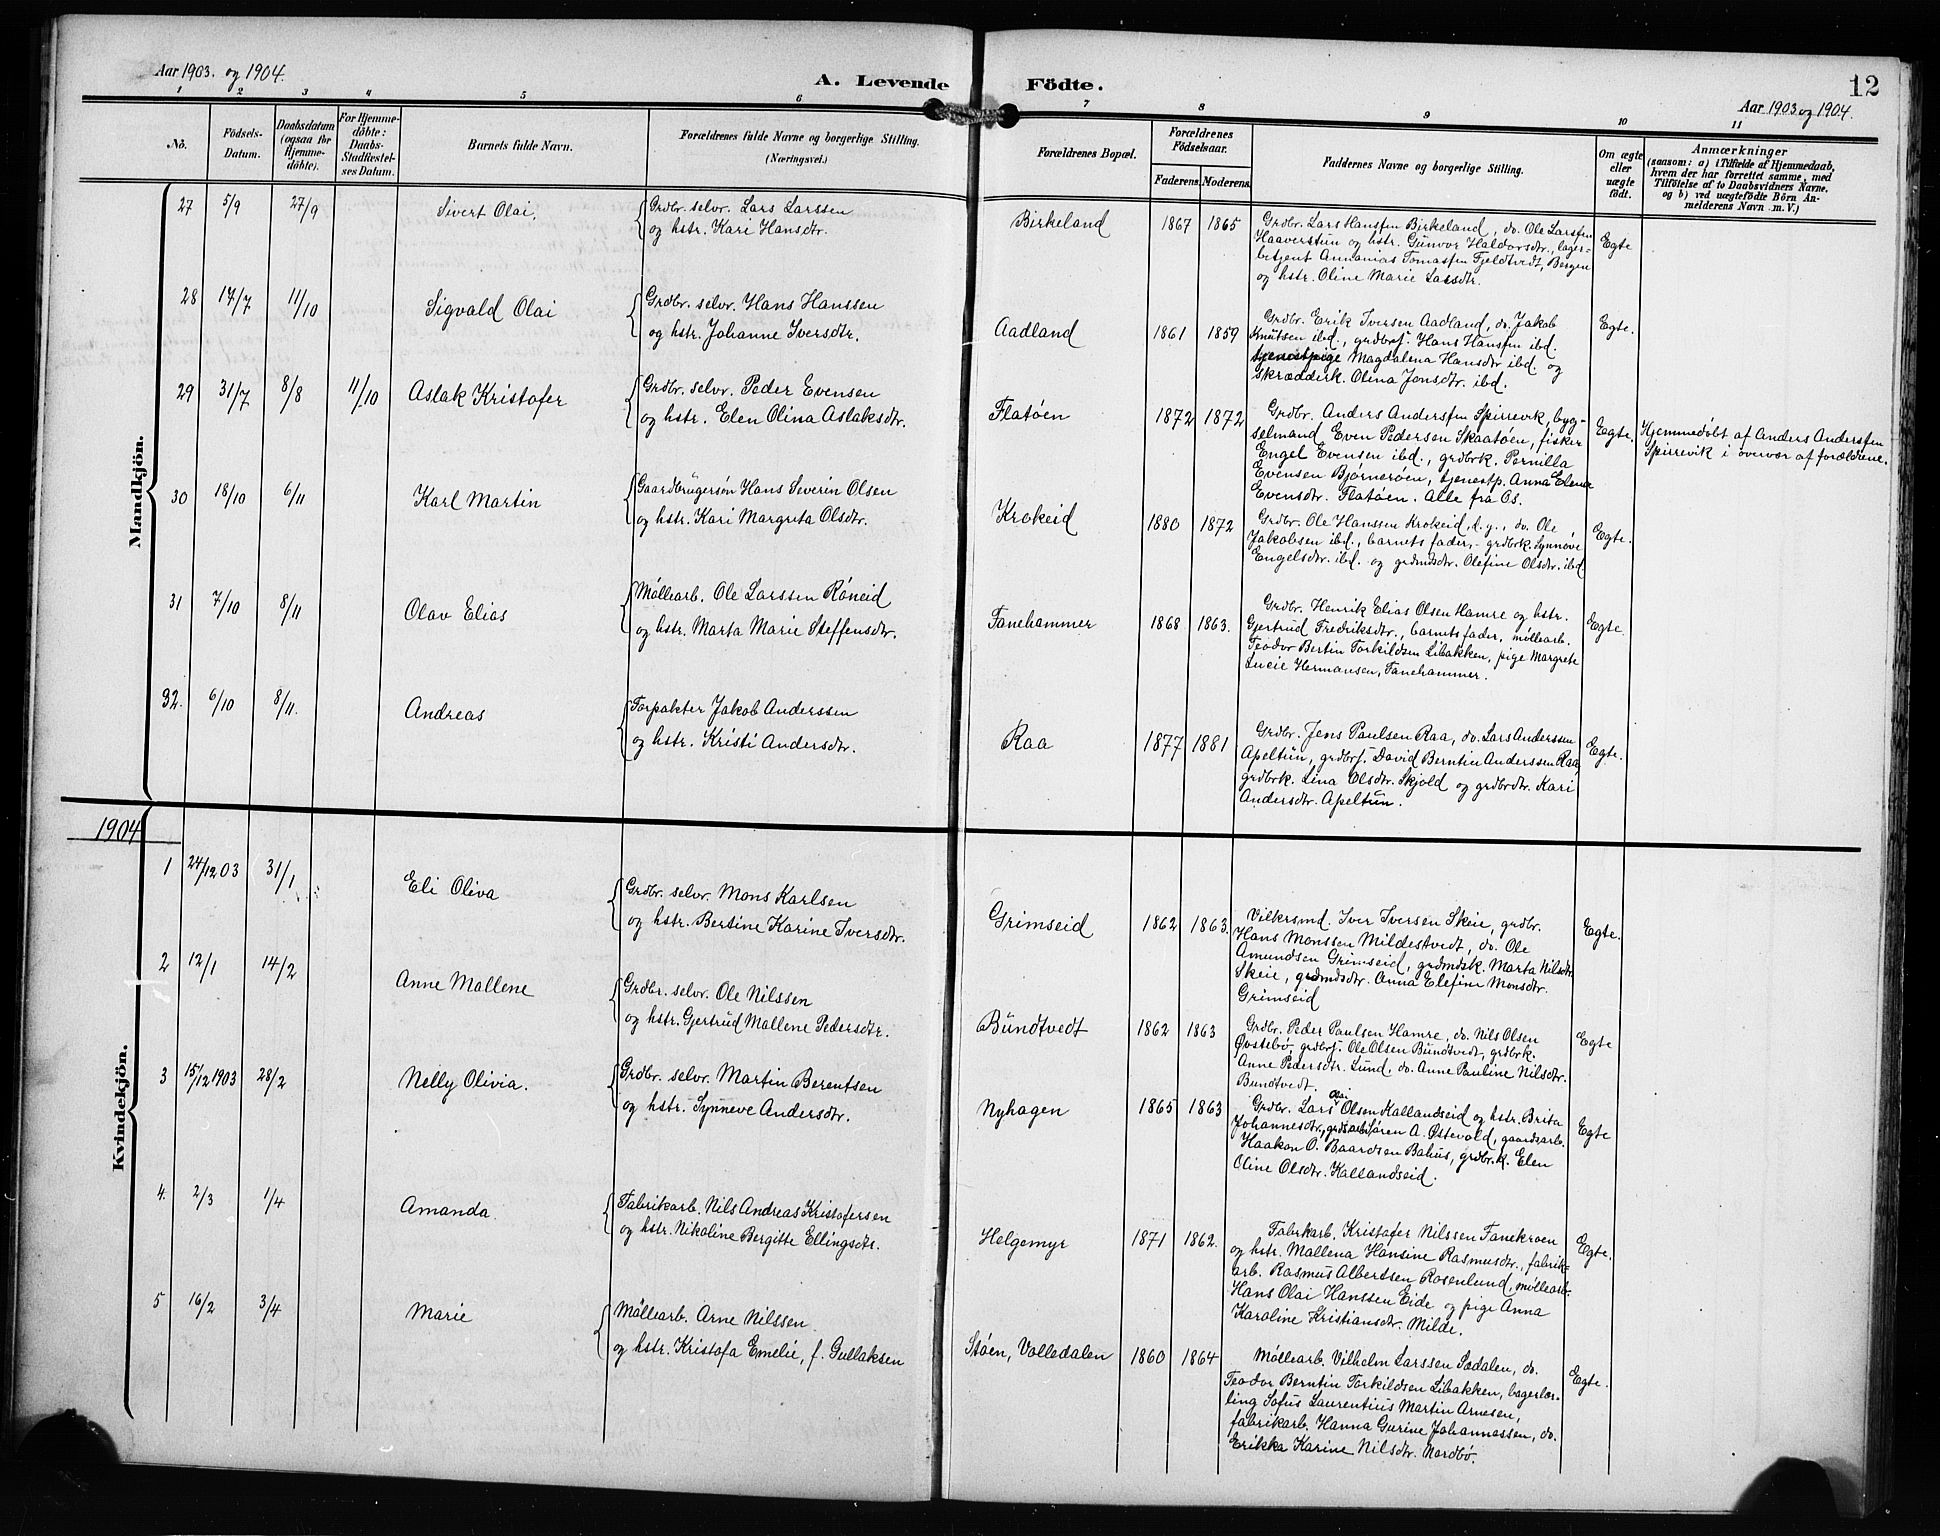 Aar 1903. og 1904.
A. Levende Födte.
12
Aar 1903 og 1904.
1 2 3 4 5 6 7 8 9 10 11
No.
Födsels-
Datum.
Daabsdatum
(ogsaa for
Hjemme-
döbte).
For Hjemme-
döbte:
Daabs-
Stadfestel-
ses Datum.
Barnets fulde Navn.
Forældrenes fulde Navne og borgerlige Stilling.
(Næringsvei.)
Forældrenes Bopæl.
Forældrenes
Födselsaar.
Faderens. Moderens.
Faddernes Navne og borgerlige Stilling.
Om ægte
eller
uægte
födt.
Anmærkninger
(saasom: a) i Tilfælde af Hjemmedaab,
hvem der har forrettet samme, med
Tilföielse af to Daabsvidners Navne.
og b) ved uægtefödte Börn An-
melderens Navn m. V.)
Mandkjön.
27 5/9 27/9 Sivert Olai.
Grdbr. selvr. Lars Larssen
og hstr. Kari Hansdtr.
Birkeland 1867 1865
Grdbr. Lars Hansſen Birkeland, do. Ole Larsſen
Haaverstun og hstr. Gunvor Haldorsdtr., lager-
betjent Annanias Tomasſen Fjeldtvedt, Bergen
og hstr. Oline Marie Larsdtr.
Egte
28 17/7 11/10 Sigvald Olai
Grdbr. selvr. Hans Hanssen
og hstr. Johanne Iversdtr.
Aadland 1861 1859
Grdbr. Erik Iversen Aadland, do. Jakob
Knutsen ibd., grdbrſ. Hans Hansſen ibd.
tjenestpige Magdalena Hansdtr ibd. og
skrædderk. Olina Jonsdtr. ibd.
Egte.
29 31/7 8/8 11/10 Aslak Kristofer
Grdbr. selvr. Peder Evensen
og hstr. Elen Olina Aslaksdtr.
Flatöen 1872 1872
Grdbr. Anders Andersſen Spirrevik, byg-
selmand Even Pedersen Skaatöen, fisker
Engel Evensen ibd., grdbrk. Pernilla
Evensen Bjørnerøen, tjenestp. Anna Elena
Evensdtr. Flatøen. Alle fra Os.
Egte.
Hjemmedøbt af Anders Andersſen
Spirrevik i overvær af forældrene.
30 18/10 6/11 Karl Martin
Gaardbrugersön Hans Severin Olsen
og hstr. Kari Margreta Olsdtr.
Krokeid 1880 1872
Grdbr. Ole Hanssen Krokeid, d.y., do. Ole
Jakobsen ibd., barnets fader, grdbrk. Synnöve
Engelsdtr. ibd. og grdmdsdtr. Olefine Olsdtr. ibd
Egte.
31 7/10 8/11 Olav Elias
Möllearb. Ole Larssen Röneid
og hstr. Marta Marie Steffensdtr.
Fanehammer 1868 1863.
Grdbr. Henrik Elias Olsen Hamre og hstr.
Gjertrud Fredriksdtr., barnets fader, møllearb.
Teodor Bertin Torkildsen Libakken, pige Margrete
Lucie Hermansen, Fanehammer.
Egte.
32. 6/10 8/11. Andreas
Forpakter Jakob Anderssen
og hstr. Kristi Andersdtr.
Raa 1877 1881
Grdbr. Jens Paulsen Raa, do. Lars Anderssen
Apeltun, grdbrſ. David Berntin Anderssen Raa,
grdbrk. Lina Olsdtr. Skjold og grdbrdtr. Kari
Andersdtr. Apeltun.
Egte.
1904
Kvindekjön.
1 24/12 03 31/1 Eli Oliva
Grdbr. selvr. Mons Karlsen
og hstr. Bertine Karine Iversdtr.
Grimseid 1862 1863.
Vilkrsmd. Iver Iversen Skeie, grdbr.
Hans Monssen Mildestvedt, do. Ole
Amundsen Grimseid, grdmdsk. Marta Nilsdtr.
Skeie, grdmdsdtr. Anna Elefine Monsdtr.
Grimseid
Egte.
2 12/1 14/2 Anne Mallene
Grdbr. selvr. Ole Nilssen
og hstr. Gjertrud Mallene Pedersdtr.
Bundtvedt 1862 1863
Grdbr. Peder Paulsen Hamre, do. Nils Olsen
Øvstebø, grdbrſ. Ole Olsen Bundtvedt, grdbrk.
Anne Pedersdtr. Lund, do. Anne Pauline Nilsdtr.
Bundtvedt.
Egte
3 15/12 1903 28/2 Nelly Olivia.
Grdbr. selvr. Martin Berentsen
og hstr. Synneve Andersdtr.
Nyhagen 1865 1863
Olai
Grdbr. Lars Olsen Kallandseid og hstr. Brita
Johannesdtr., grdsarb. Søren A. Østevold, gaardsarb.
Haakon O. Baardsen Bahus, grdbr.k. Elen
Oline Olsdtr. Kallandseid.
Egte
4. 2/3 1/4 Amanda.
Fabrikarb. Nils Andreas Kristofersen
og hstr. Nikoline Bergitte Ellingsdtr.
Helgemyr 1871 1862.
Fabrkarb. Kristofer Nilssen Fanekroen
og hstr. Mallena Hansine Rasmusdtr., fabrik-
arb. Rasmus Albertsen Rosenlund, møllearb.
Hans Olai Hanssen Eide og pige Anna
Karoline Kristiansdtr. Milde.
Egte.
5 16/2 3/4 Marie
Möllearb. Arne Nilssen
og hstr. Kristofa Emelie, f. Gullaksen
Støen, Volledalen 1860 1864
Möllearb. Vilhelm Larssen Sædalen, do.
Teodor Berntin Torkildsen Libakken, bagerlær-
ling Sofus Laurentius Martin Arnesen,
fabrikarb. Hanna Gurine Johannassen, do.
Erikka Karine Nilsdtr. Nordbø.
Egte.